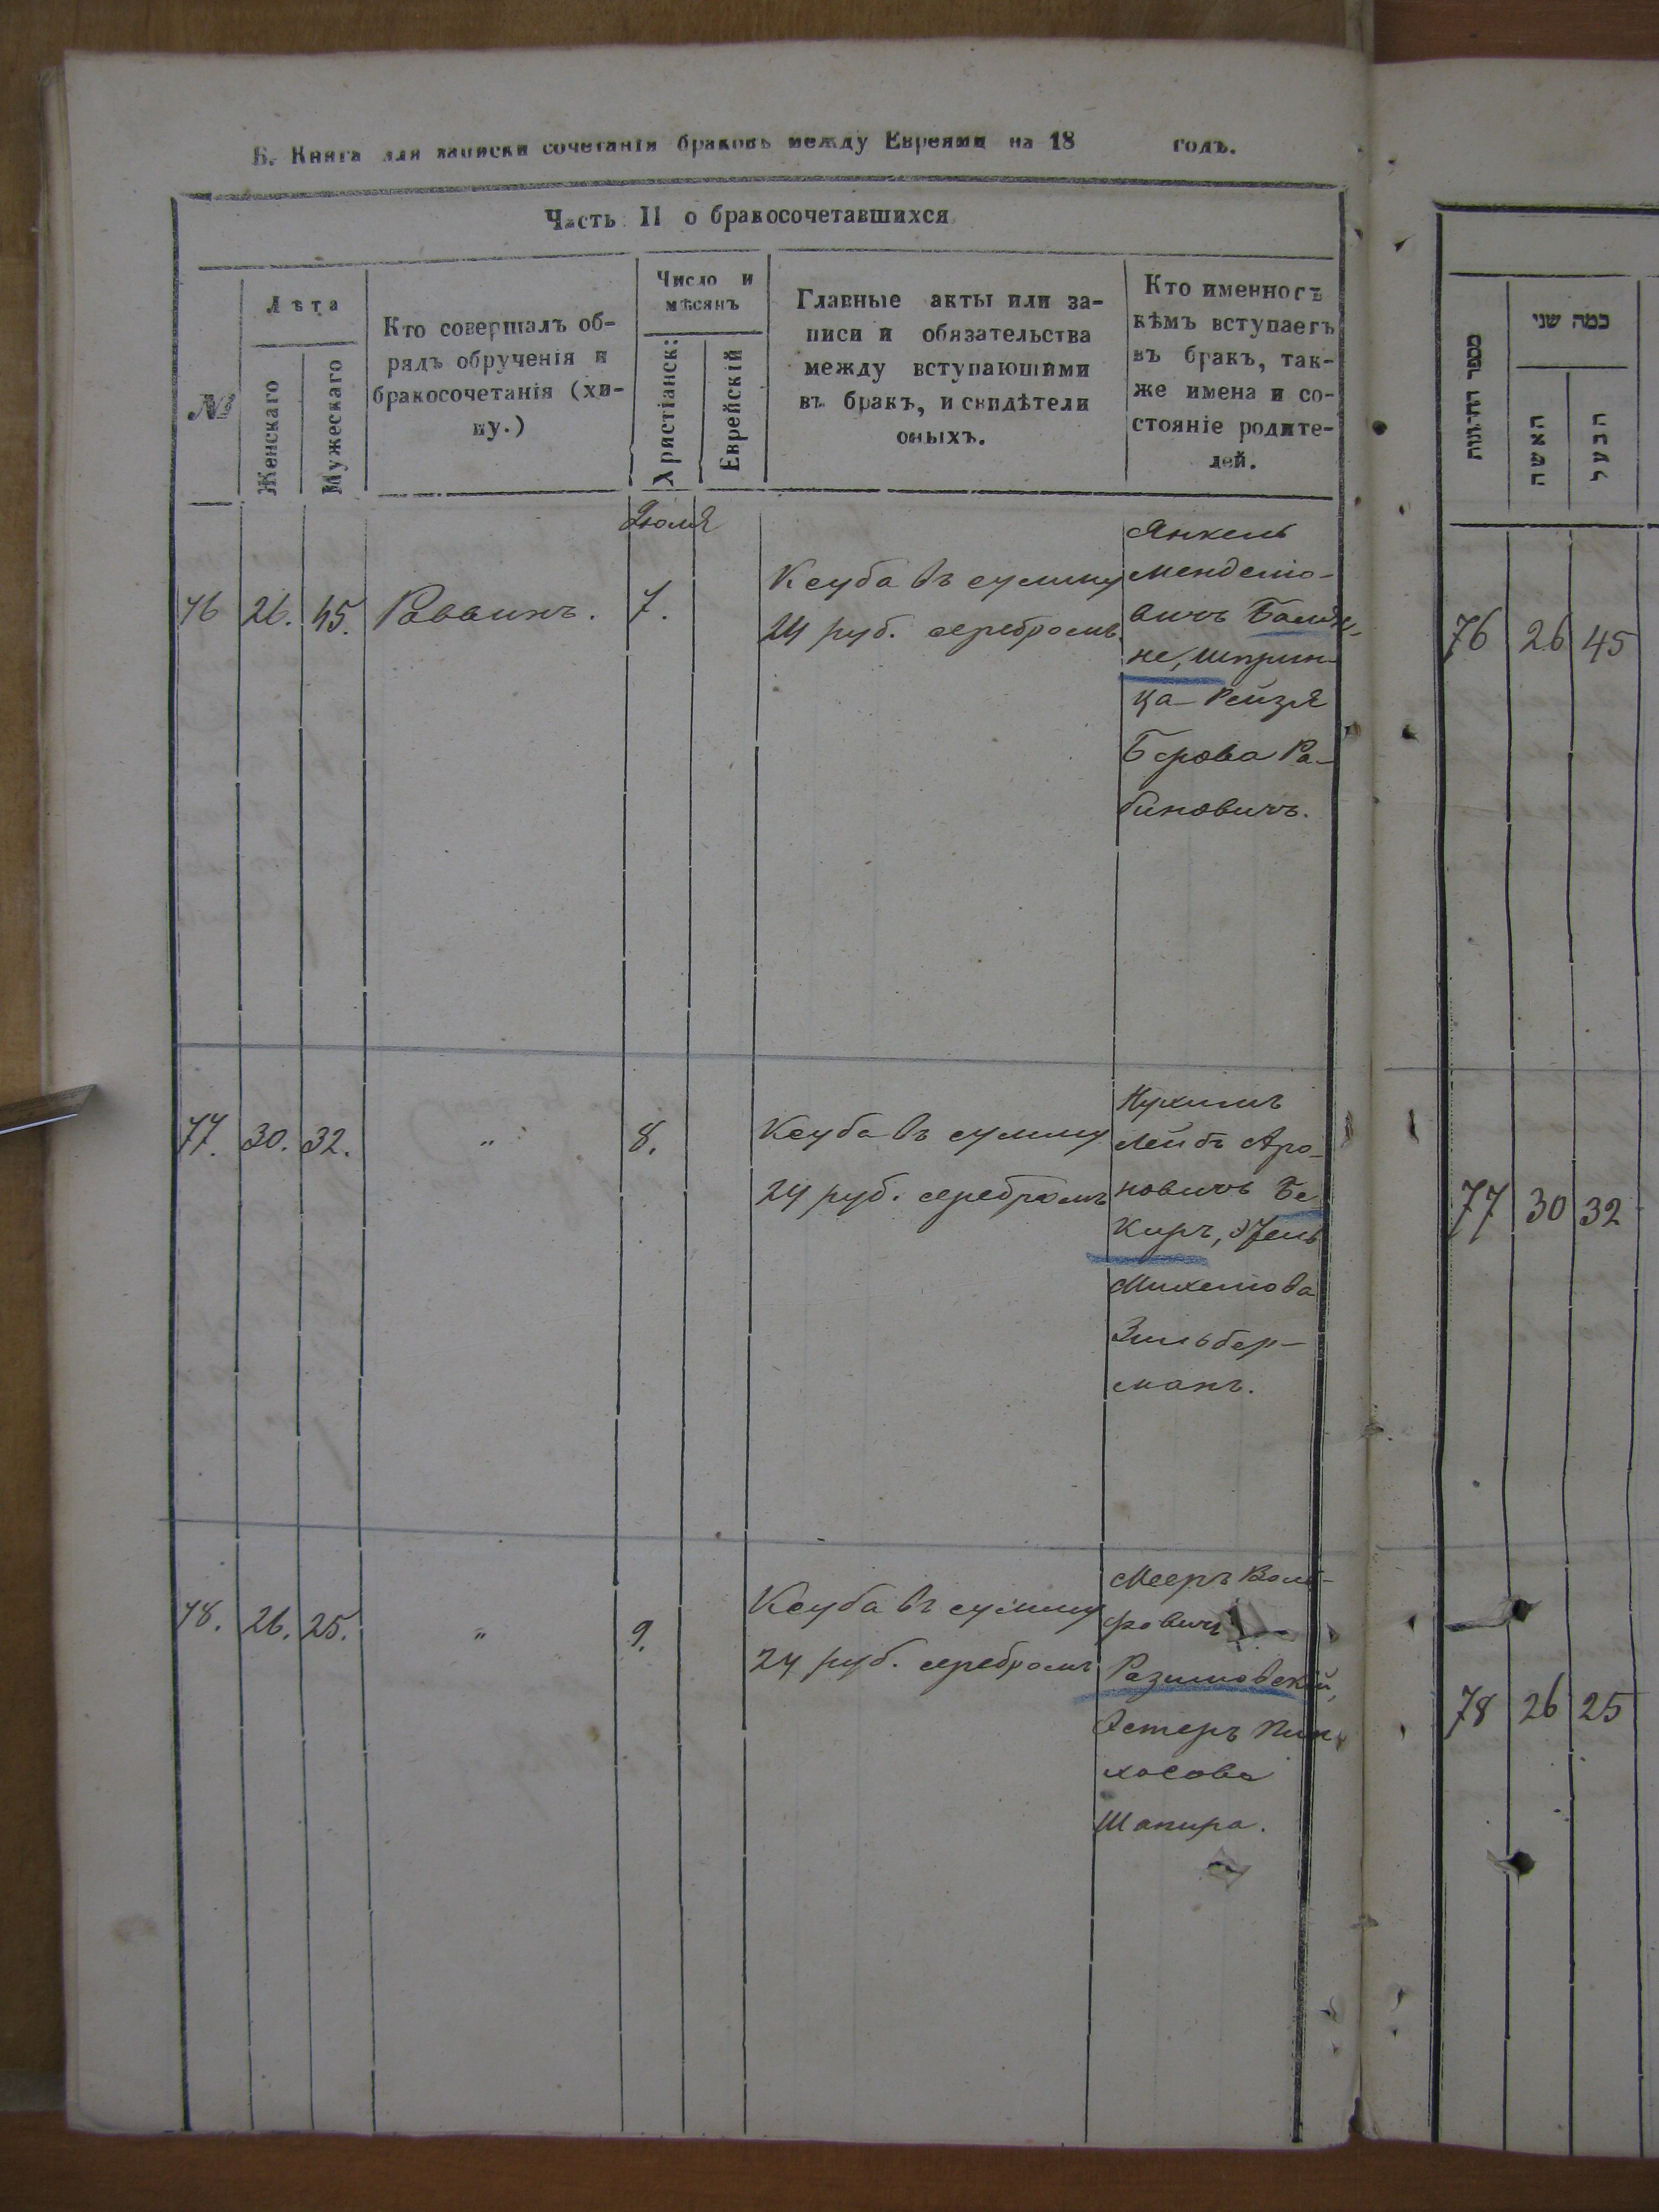 Б. Книга для записки сочетанія браковъ между Евреями на 18 годъ.
Часть II о бракосочетавшихся
№
Лѣта
Женскаго
Мужескаго
Кто совершалъ об-
рядъ обрученія и
бракосочетанія (хи-
ну.)
Число и
мѣсяцъ
Христіанск:
Еврейскій
Главные акты или за-
писи и обязательства
между вступающими
въ бракъ, и свидѣтели
оныхъ.
Кто именно съ
кѣмъ вступаетъ
въ бракъ, так-
же имена и со-
стояніе родите-
лей.
Іюля
76 26. 45. Раввинъ. 7.
Ксуба въ сумму
24 руб. серебромъ.
Янкель
Менделіо-
вичъ
не, Шприн-
ца Рейзя
Берова Ра-
биновичъ.
77. 30. 32. „ 8.
Ксуба въ сумму
24 руб. серебромъ
Нухимъ
Лейбъ Аро-
новичъ Бе
киръ, Этель
Михелова
Зильбер-
манъ.
78. 26. 25. „ 9.
Ксуба въ сумму
24 руб. серебромъ
Мееръ Воль-
фовичъ
Разумовскій,
Эстеръ Пин
хасова
Шапира.
מספר החתונות
כמה שני
האשה
הבעל
76 26 45
77 30 32
78 26 25